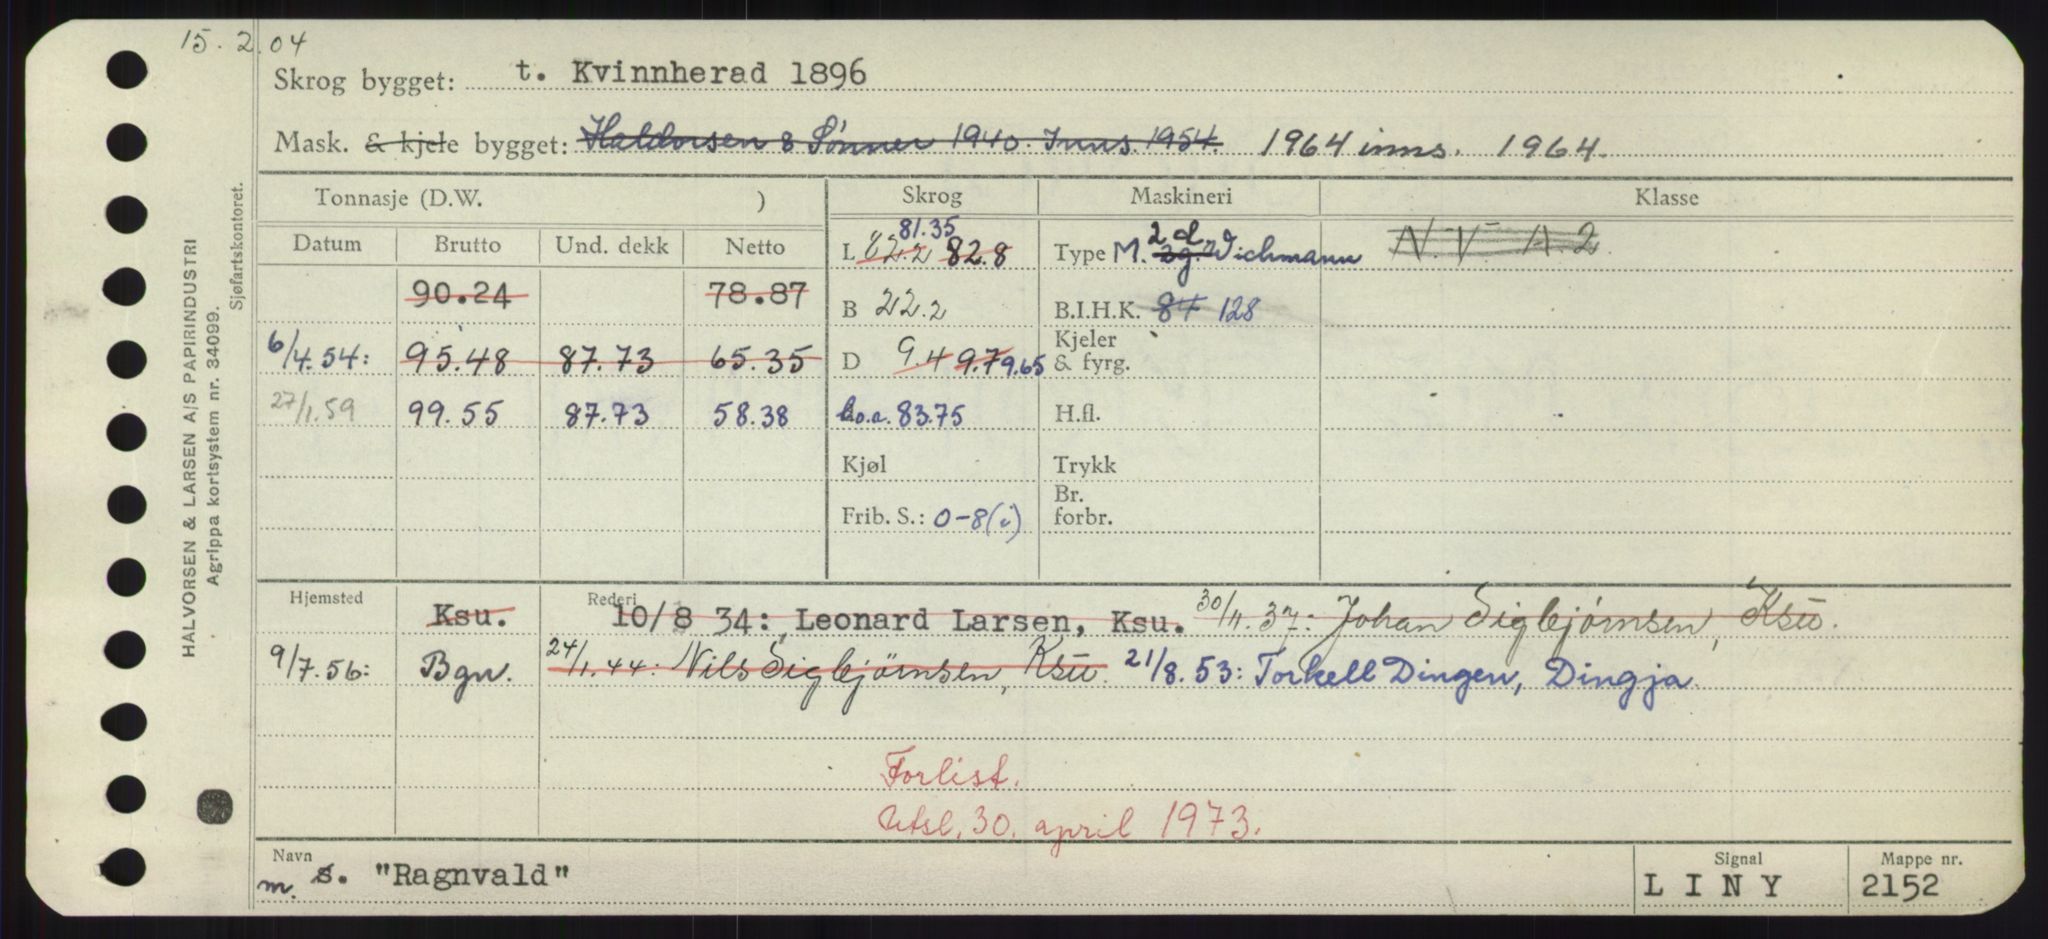 15.2.04
Skrog bygget: t. Kvinnherad 1896
Mask. & kjele bygget: Haldorsen & Sønner 1940. Inns. 1954. 1964 inns. 1964.
Tonnasje (D.W. ) Skrog Maskineri Klasse
Datum Brutto Und. dekk Netto L 82.2 82.8 81.35 Type M. 2g. 2 d. Wichmann N.V. A.2
90.24 78.87 B 22.2 B.I.H.K. 84 128
6/4.54: 95.48 87.73 65.35 D 9.4 9.7 9.65 Kjeler & fyrg.
27/1.59 99.55 87.73 58.38 l.o.a. 83.75 H.fl.
Kjøl Trykk
Frib. S.: 0-8(i) Br. forbr.
Hjemsted Rederi
Ksu. 10/8 34: Leonard Larsen, Ksu. 30/11.37: Johan Sigbjørnsen, Ksu.
9/7.56: Bgn. 24/1.44: Nils Sigbjørnsen, Ksu. 21/8.53: Torkell Dingen, Dingja.
Forlist.
Utsl. 30. april 1973.
Navn Signal Mappe nr.
m. s. "Ragnvald" LINY 2152
HALVORSEN & LARSEN A/S PAPIRINDUSTRI
Agrippa kortsystem nr. 34099.
Sjøfartskontoret.